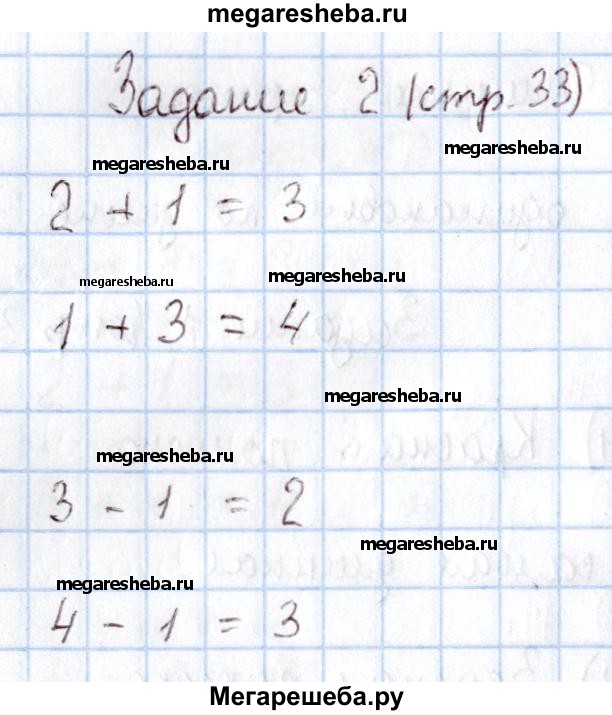 megaresheba.ru
Задание 2 (стр. 33)
megaresheba.ru
megaresheba.ru
2 + 1 = 3
megaresheba.ru
megaresheba.ru
1 + 3 = 4
megaresheba.ru
megaresheba.ru
3 - 1 = 2
megaresheba.ru
megaresheba.ru
4 - 1 = 3
Мегарешеба.ру